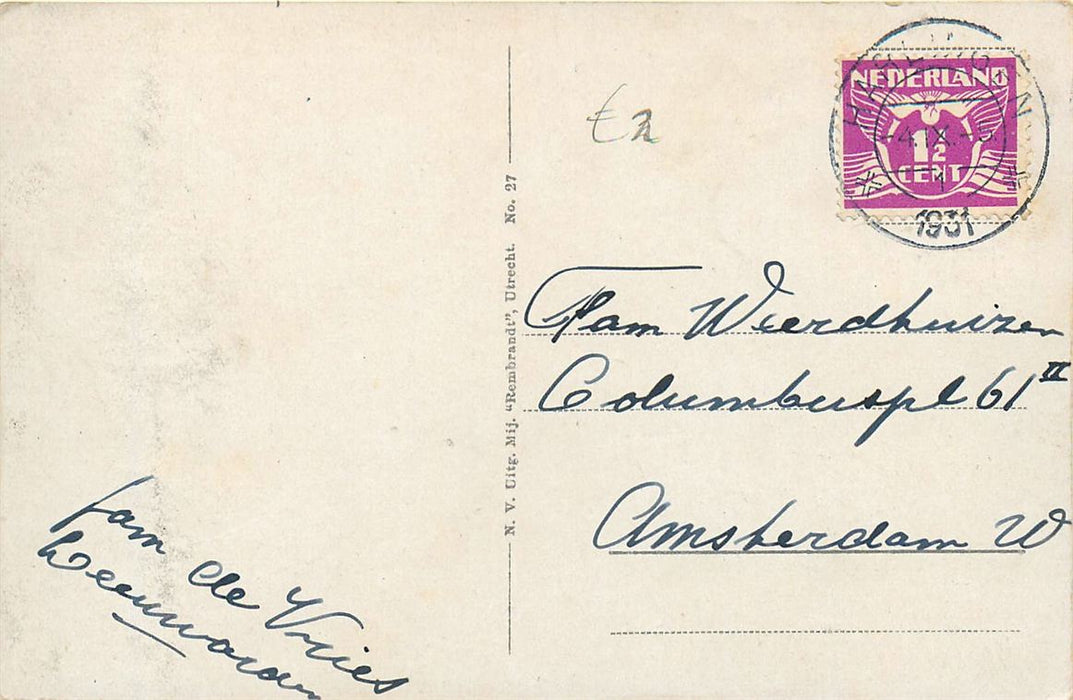 €2
NEDERLAND
1½
CENT
HARLINGEN
4.IX.-5
1
1931
N. V. Uitg. Mij. "Rembrandt", Utrecht. No. 27
Fam Wierdhuizen
Columbuspl 61 II
Amsterdam W
fam de Vries
Leeuwarden